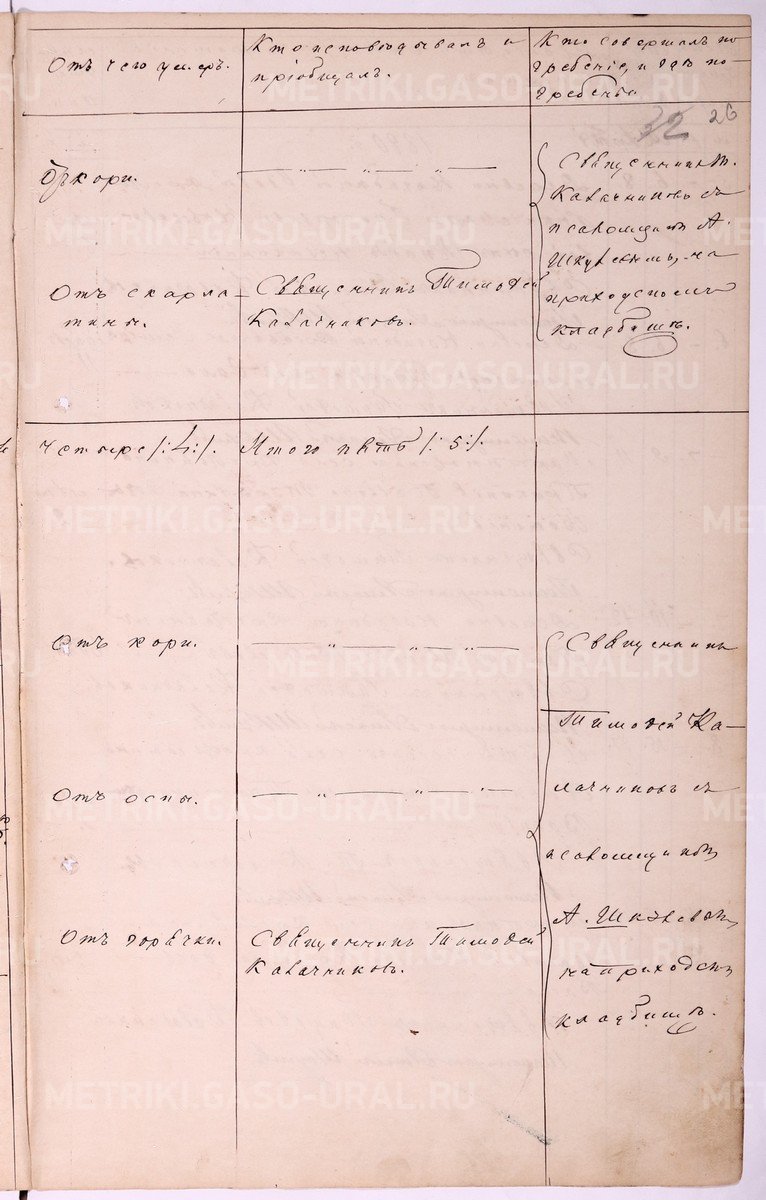 Отъ чего умеръ.
Кто исповѣдывалъ и
пріобщалъ.
Кто совершалъ по-
гребеніе, и гдѣ по-
гребены
32 26
Отъ кори.
— „ — „ — „ —
Отъ скарла-
тины.
Священникъ Тимоѳей
Калачниковъ.
Священникъ Т.
Калачниковъ съ
псаломщикомъ А.
на
приходскомъ
кладбищѣ.
Четыре /:4:/.
Итого пять /:5:/.
Отъ кори.
— „ — „ — „ —
Отъ оспы.
— „ — „ — „ —
Отъ горячки.
Священникъ Тимоѳей
Калачниковъ.
Священникъ
Тимоѳей Ка-
лачниковъ съ
псаломщикомъ
А.
на приходскомъ
кладбищѣ.
METRIKI.GASO-URAL.RU